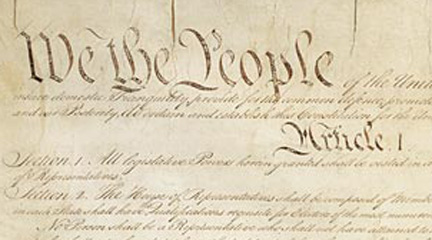 We the People of the Unite
insure domestic Tranquility, provide for the common defence, promote
and our Posterity, do ordain and establish this Constitution for the Unit
Article. I.
Section. 1. All legislative Powers herein granted shall be vested in a
of Representatives.
Section. 2. The House of Representatives shall be composed of Membe
in each State shall have Qualifications requisite for Electors of the most numerous
No Person shall be a Representative who shall not have attained to